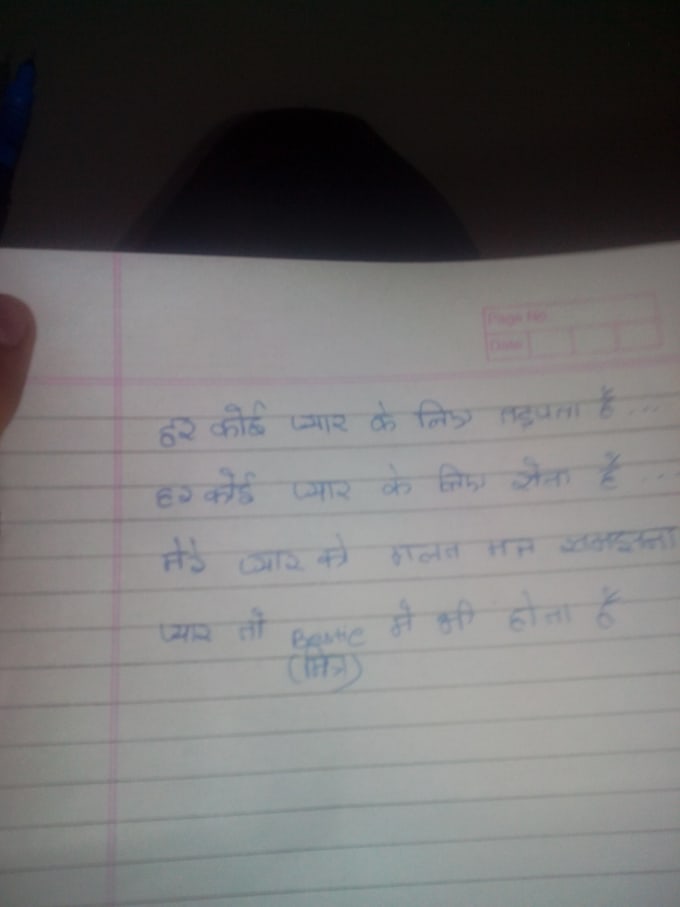 Page No
Date
हर कोई प्यार के लिए तड़पता है...
हर कोई प्यार के लिए रोता है...
मेरे प्यार को गलत मत समझना
प्यार तो Bestie में भी होता है
(मित्र)